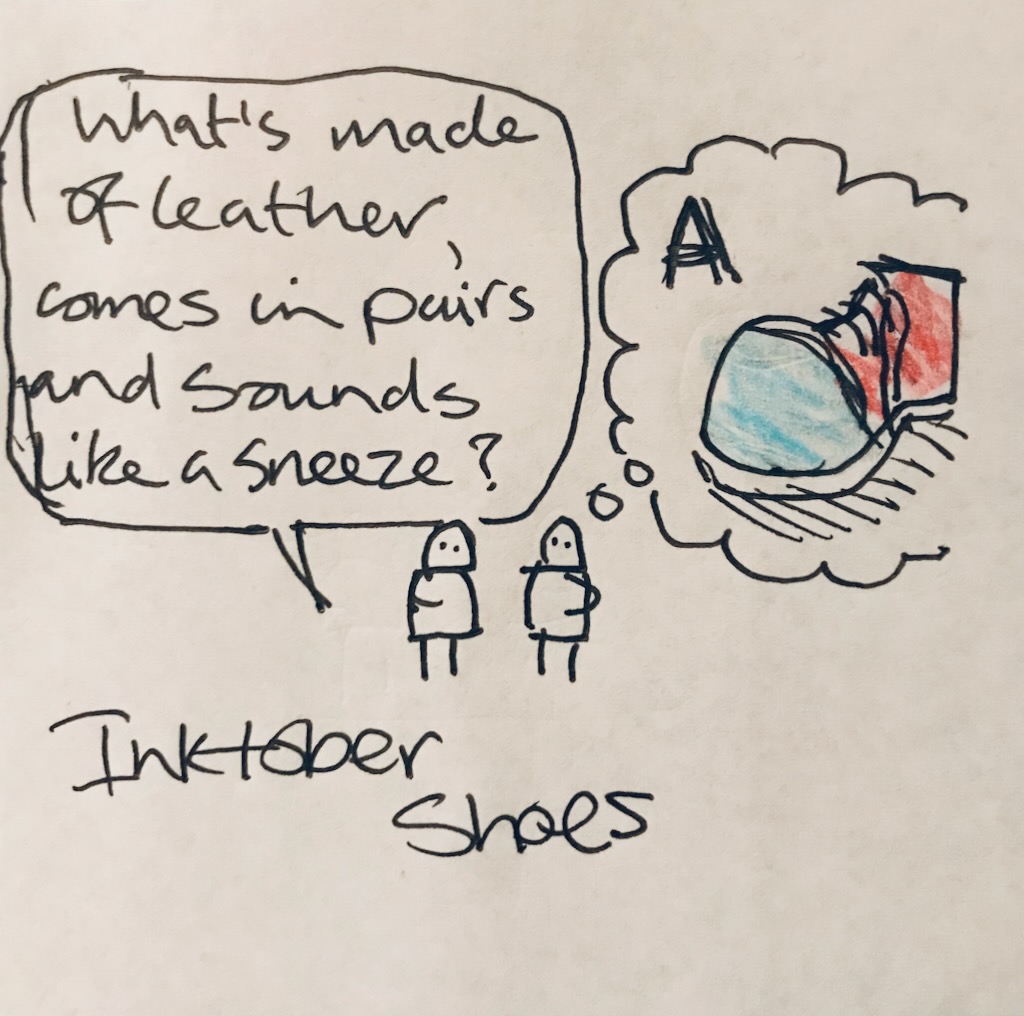 What's made
of leather,
comes in pairs
and sounds
like a sneeze?
A
Inktober
Shoes